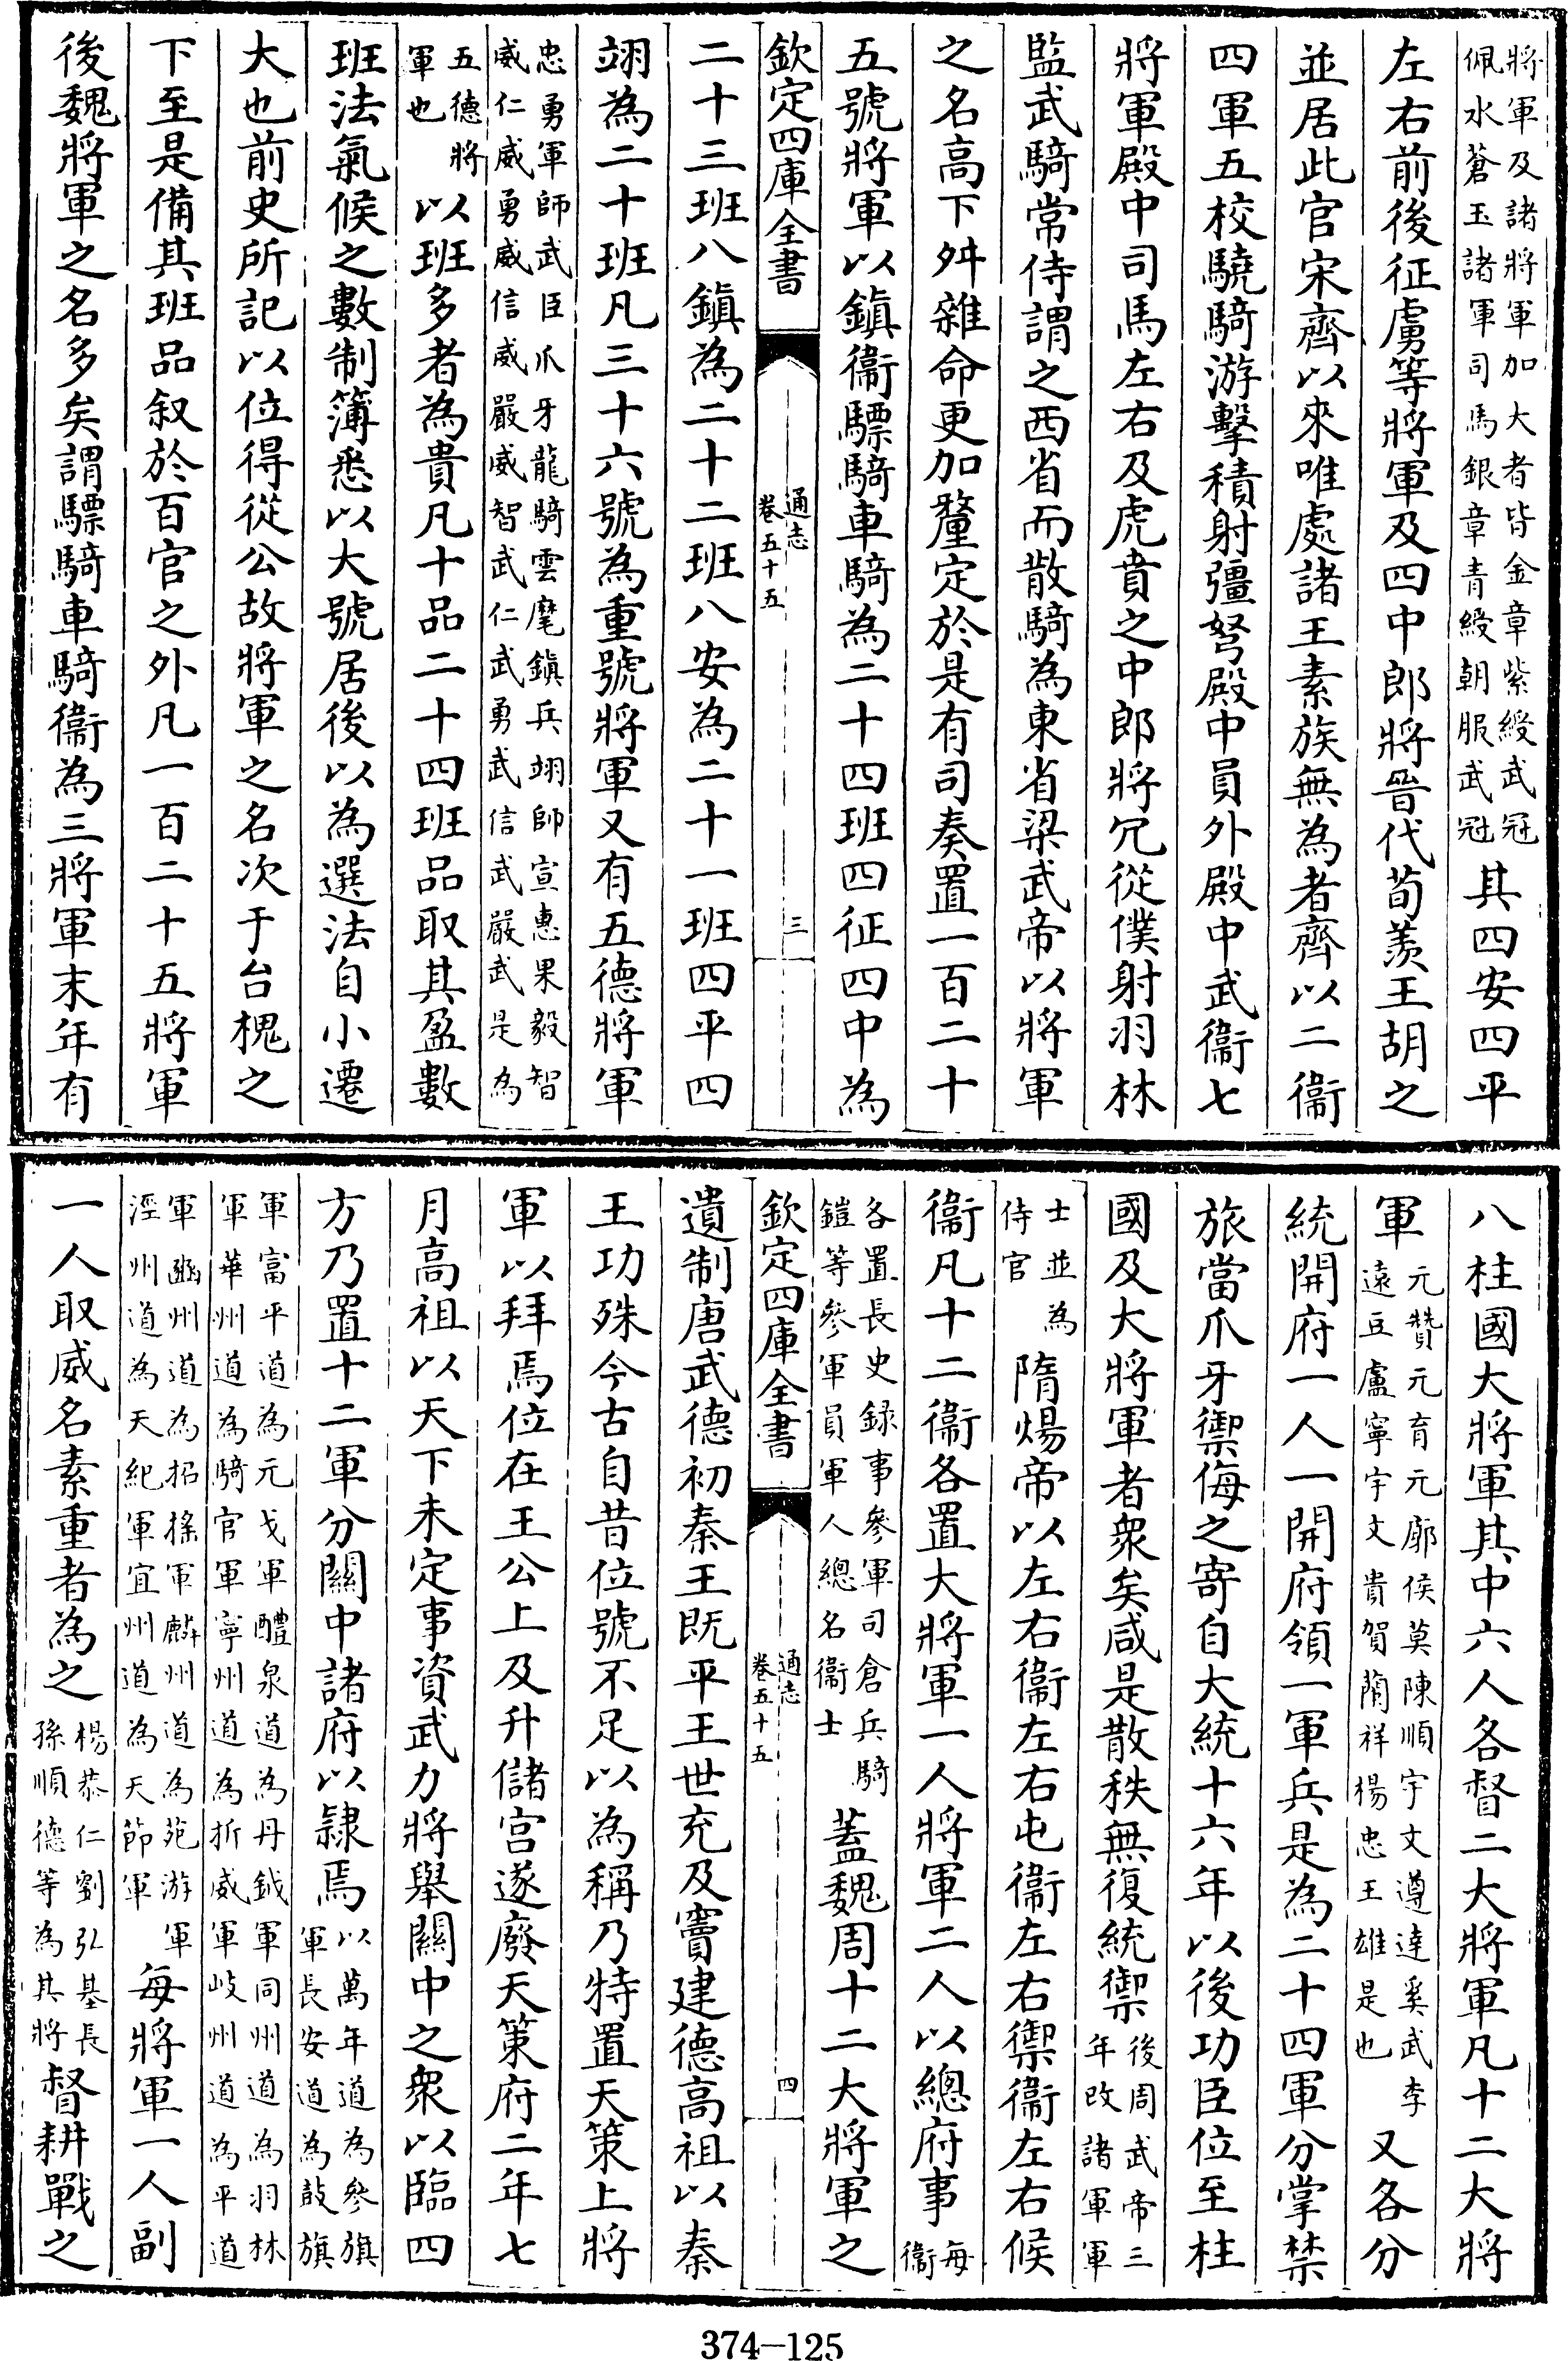 將軍及諸將軍加大者皆金章紫綬武冠
佩水蒼玉諸軍司馬銀章青綬朝服武冠
其四安四平
左右前後征虜等將軍及四中郎將晉代荀羨王胡之
並居此官宋齊以來唯處諸王素族無為者齊以二衞
四軍五校驍騎游擊積射彊弩殿中員外殿中武衞七
將軍殿中司馬左右及虎賁之中郎將冗從僕射羽林
監武騎常侍謂之西省而散騎為東省梁武帝以將軍
之名高下舛雜命更加釐定於是有司奏置一百二十
五號將軍以鎮衞驃騎車騎為二十四班四征四中為
欽定四庫全書
通志
卷五十五
三
二十三班八鎮為二十二班八安為二十一班四平四
翊為二十班凡三十六號為重號將軍又有五德將軍
忠勇軍師武臣爪牙龍騎雲麾鎮兵翊師宣惠果毅智
威仁威勇威信威嚴威智武仁武勇武信武嚴武是為
五德將
軍也
以班多者為貴凡十品二十四班品取其盈數
班法氣候之數制簿悉以大號居後以為選法自小遷
大也前史所記以位得從公故將軍之名次于台槐之
下至是備其班品叙於百官之外凡一百二十五將軍
後魏將軍之名多矣謂驃騎車騎衞為三將軍末年有
八柱國大將軍其中六人各督二大將軍凡十二大將
軍
元贊元育元廓侯莫陳順宇文遵達奚武李
遠豆盧寧宇文貴賀蘭祥楊忠王雄是也
又各分
統開府一人一開府領一軍兵是為二十四軍分掌禁
旅當爪牙禦侮之寄自大統十六年以後功臣位至柱
國及大將軍者衆矣咸是散秩無復統禦
後周武帝三
年改諸軍軍
士並為
侍官
隋煬帝以左右衞左右屯衞左右禦衞左右候
衞凡十二衞各置大將軍一人將軍二人以總府事
每
衞
各置長史錄事參軍司倉兵騎
鎧等參軍員軍人總名衞士
蓋魏周十二大將軍之
欽定四庫全書
通志
卷五十五
四
遺制唐武德初秦王既平王世充及竇建德高祖以秦
王功殊今古自昔位號不足以為稱乃特置天策上將
軍以拜焉位在王公上及升儲宫遂廢天策府二年七
月高祖以天下未定事資武力將舉關中之衆以臨四
方乃置十二軍分關中諸府以隸焉
以萬年道為參旗
軍長安道為鼓旗
軍富平道為元戈軍醴泉道為丹鉞軍同州道為羽林
軍華州道為騎官軍寧州道為折威軍岐州道為平道
軍豳州道為招搖軍麟州道為苑游軍
涇州道為天紀軍宜州道為天節軍
每將軍一人副
一人取威名素重者為之
楊恭仁劉弘基長
孫順德等為其將
督耕戰之
374-125